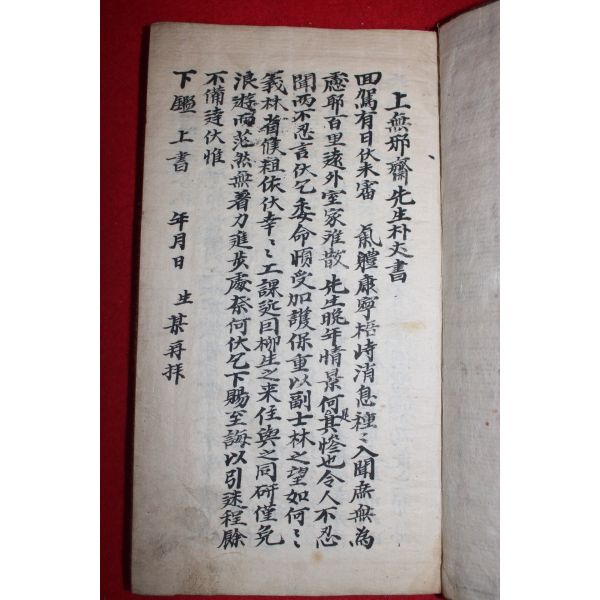 上無邪齋先生朴丈書
回駕有日伏未審 氣體康寧梧峙消息種〻入聞庶無為
慮耶百里遠外室家離散 先生晩年情景何是其慘也令人不忍
聞而不忍言伏乞委命順受加護保重以副士林之望如何〻〻
義林省候粗依伏幸〻〻工課近日柳生之来住與之同研僅免
浪遊而茫然無着力進步處奈何伏乞下賜至誨以引迷程餘
不備達伏惟
下鑑 上書 年月日 生某再拜